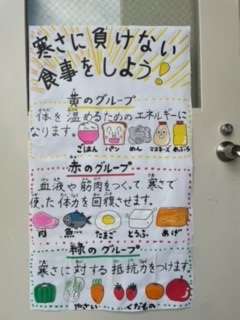 寒さに負けない
食事をしよう!
黄のグループ
体を温めるためのエネルギーに
なります。
ごはん パン めん マヨネーズ あぶら
赤のグループ
血液や筋肉をつくって寒さで
使った体力を回復させます。
肉 魚 たまご とうふ あげ
緑のグループ
寒さに対する抵抗力をつけます。
やさい くだもの